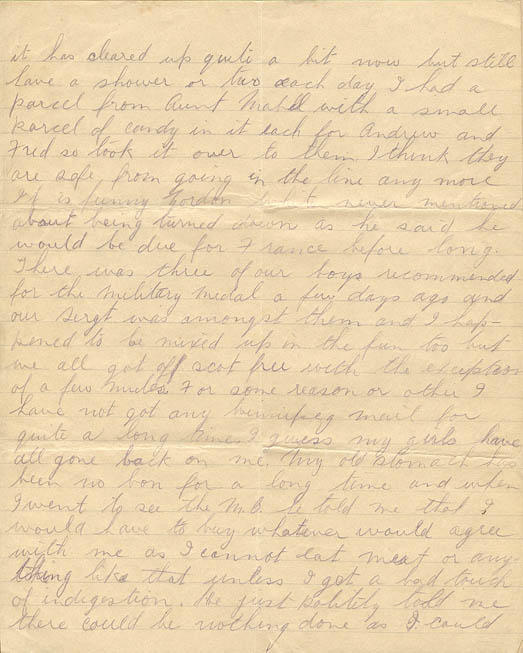 it has cleared up quite a bit now but still
have a shower or two each day. I had a
parcel from Aunt Mabel with a small
parcel of candy in it each for Andrew and
Fred so took it over to them. I think they
are safe from going in the line any more
It is funny Gordon never mentioned
about being turned down as he said he
would be due for France before long.
There was three of our boys recommended
for the Military Medal a few days ago and
our Sergt was amongst them and I hap-
pened to be mixed up in the fun too but
we all got off scot free with the exception
of a few mules. For some reason or other I
have not got any Winnipeg mail for
quite a long time. I guess my girls have
all gone back on me. My old stomach has
been no bon for a long time and when
I went to see the M.O. he told me that I
would have to buy whatever would agree
with me as I cannot eat meat or any-
thing like that unless I got a bad touch
of indigestion. He just politely told me
there could be nothing done as I could